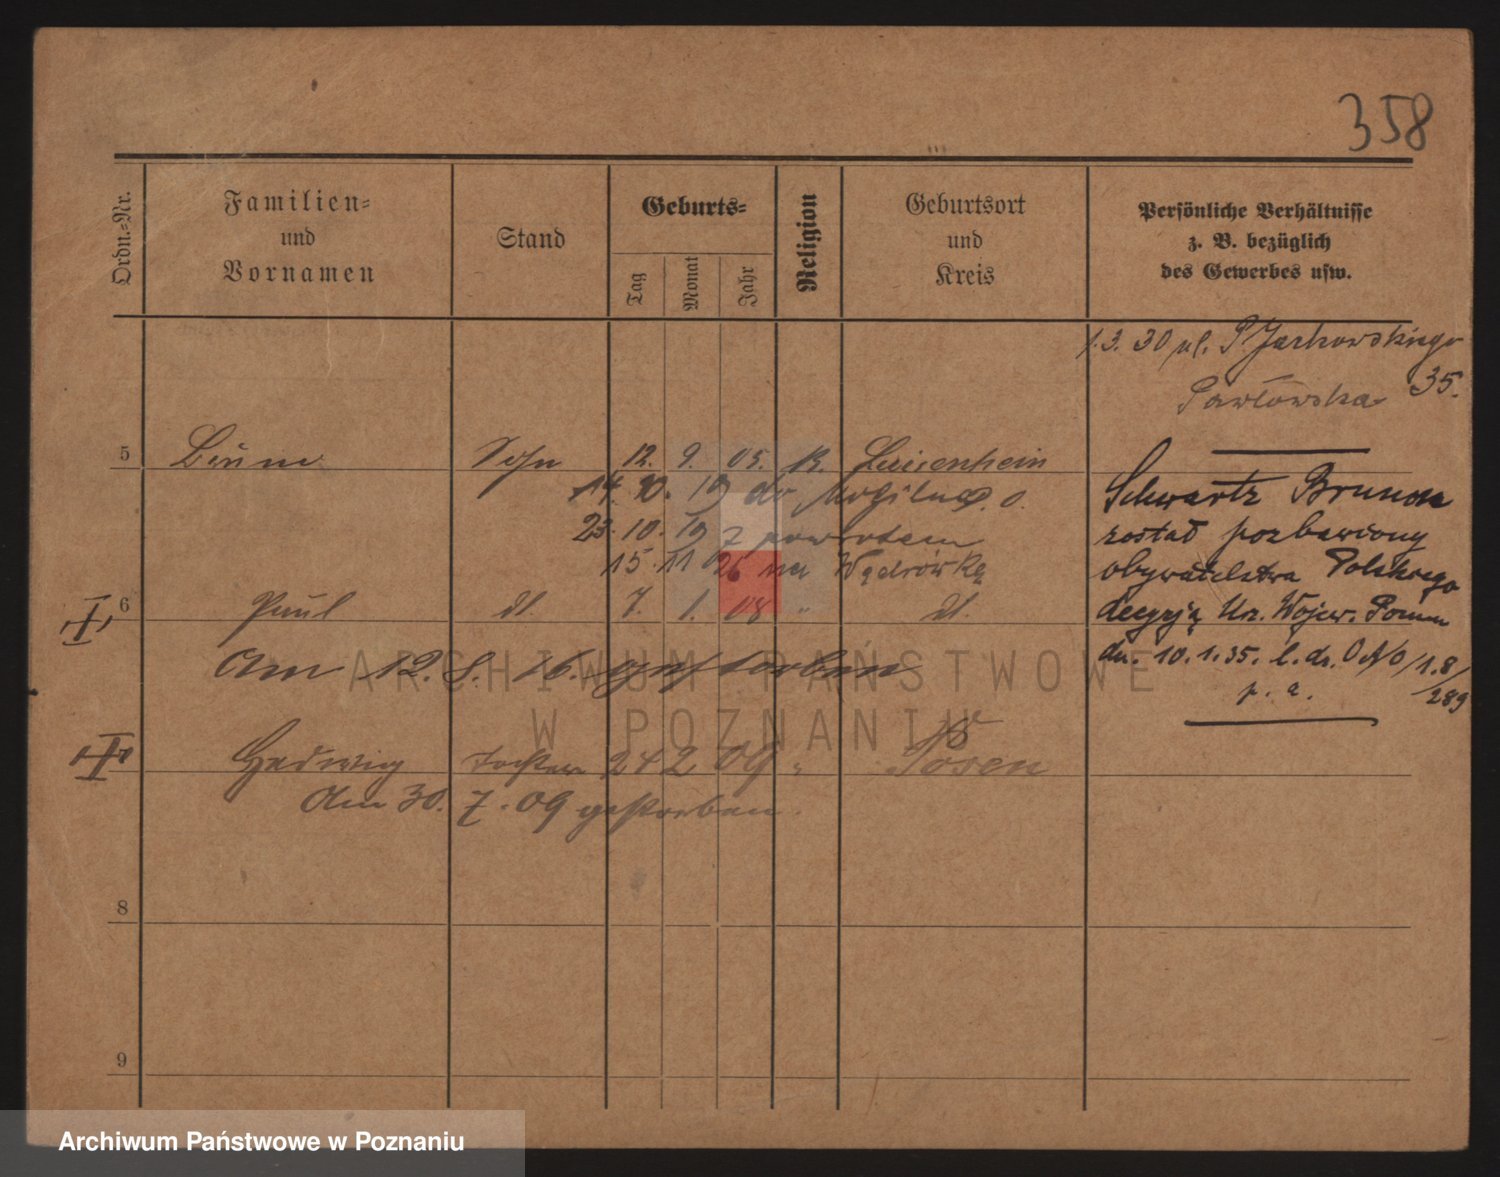 358
Ordn.-Nr.
Familien-
und
Vornamen
Stand
Geburts-
Tag
Monat
Jahr
Religion
Geburtsort
und
Kreis
Persönliche Verhältnisse
z. B. bezüglich
des Gewerbes usw.
1.3.30 ul. P Jackowskiego
Pawłowska 35.
5 Bruno Sohn 12. 9. 05. K. Luisenhein
14. 10. 19 do Mogilna
23. 10. 19 z powrotem
15. 11 26 na Wędrówkę
Schwartz Bruno
został pozbawiony
obywatelstwa Polskiego
decyzją Urz. Wojew. Pozn
dn. 10.1.35. l. dz. 1.8/
289
p. a.
6 Paul dt. 7. 1. 08 " dt.
Am 12. 8. 16. gestorben
Hedwig Tochter 24 2 09 " Posen
Am 30. 7. 09 gestorben.
8
9
ARCHIWUM PAŃSTWOWE
W POZNANIU
Archiwum Państwowe w Poznaniu